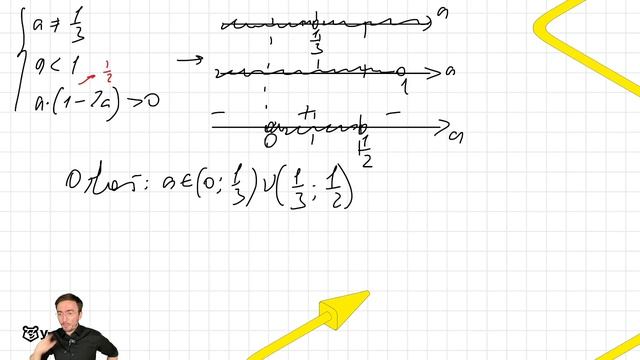 a ≠ 1/3
a < 1
1/2
a·(1-2a) > 0
a
1/3
a
1
- + -
a
0
1/2
Ответ: a∈(0; 1/3)∪(1/3; 1/2)
y